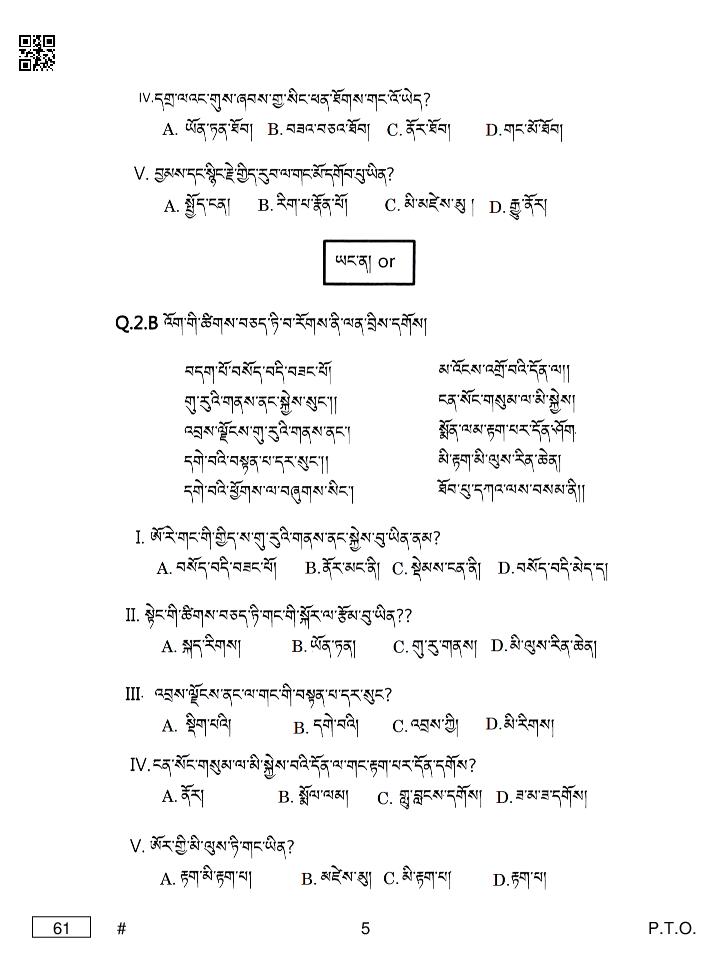 IV.དགྲ་ལའང་གུས་ཞབས་གྱ་སིང་ཕན་ཐོགས་གང་འོ་ཡེད?
A. ཡོན་ཏན་ཐོབ། B. བཟའ་བཅའ་ཐོབ། C. ནོར་ཐོབ། D.གང་མོ་ཐོབ།
V. བྱམས་དང་སྙིང་རྗེ་གྱིད་རུབ་ལ་གང་མོ་དགོབ་པུ་ཡིན?
A. སྤྱོད་ངན། B. རིག་པ་རྣོན་པོ། C. མི་མཛེས་མུ། D. རྒྱུ་ནོར།
ཡང་ན། or
Q.2.B འོག་གི་ཚིགས་བཅད་ཏེ་བ་རོགས་ནི་ལན་བྲིས་དགོས།
བདག་པོ་བསོད་བདི་བཟང་པོ། མ་འོངས་འགྲོ་བའི་དོན་ལ།།
གུ་རུའི་གནས་ནང་སྐྱེས་སུང་།། ངན་སོང་གསུམ་ལ་མི་སྐྱེས།
འབྲས་ལྗོངས་གུ་རུའི་གནས་ནང་། སྨོན་ལམ་རྟག་པར་དོན་ཤོག
དགེ་བའི་བསྟན་པ་དར་སུང་།། མི་རྟག་མི་ལུས་རིན་ཆེན།
དགེ་བའི་ཕྱོགས་ལ་བཞུགས་སིང་། ཐོབ་པུ་དཀའ་ལས་བསམ་ནི།།
I. ཨོ་རེ་གང་གི་གྱིད་ས་གུ་རུའི་གནས་ནང་སྐྱེས་བུ་ཡིན་ནམ?
A. བསོད་བདི་བཟང་པོ། B.ནོར་མང་ནི། C. སྡེམས་ངན་ནི། D.བསོད་བདི་མེད་ད།
II. སྟེང་གི་ཚིགས་བཅད་ཏི་གང་གི་སྐོར་ལ་རྩོམ་བུ་ཡིན??
A. སྐད་རིགས། B. ཡོན་ཏན། C. གུ་རུ་གནས། D.མི་ལུས་རིན་ཆེན།
III. འབྲས་ལྗོངས་ནང་ལ་གང་གི་བསྟན་པ་དར་སུང?
A. སྡིག་པའི། B. དགེ་བའི། C. འབྲས་ཀྱི། D.མི་རིགས།
IV.ངན་སོང་གསུམ་ལ་མི་སྐྱེས་བའི་དོན་ལ་གང་རྟག་པར་དོན་དགོས?
A. ནོར། B. སྨོལ་ལམ། C. གླུ་བླངས་དགོས། D. ཟ་མ་ཟ་དགོས།
V. ཨོར་གྱི་མི་ལུས་ཏི་གང་ཡིན?
A. རྟག་མི་རྟག་པ། B. མཛེས་མུ། C. མི་རྟག་པ། D.རྟག་པ།
61 # 5 P.T.O.